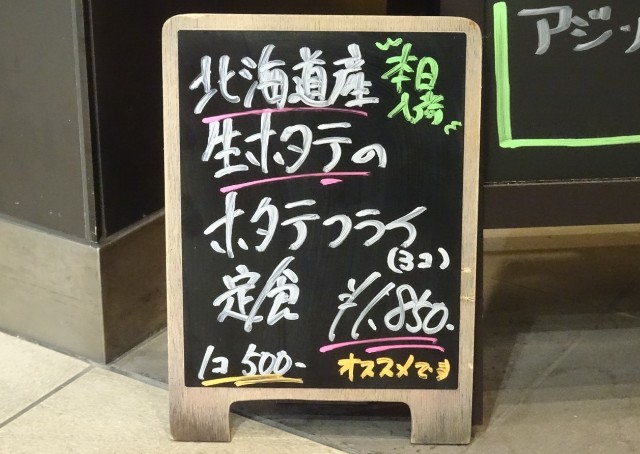 北海道産
本日
入荷
生ホタテの
ホタテフライ
(3コ)
定食 ¥1,850.
1コ 500-
オススメです
アジ